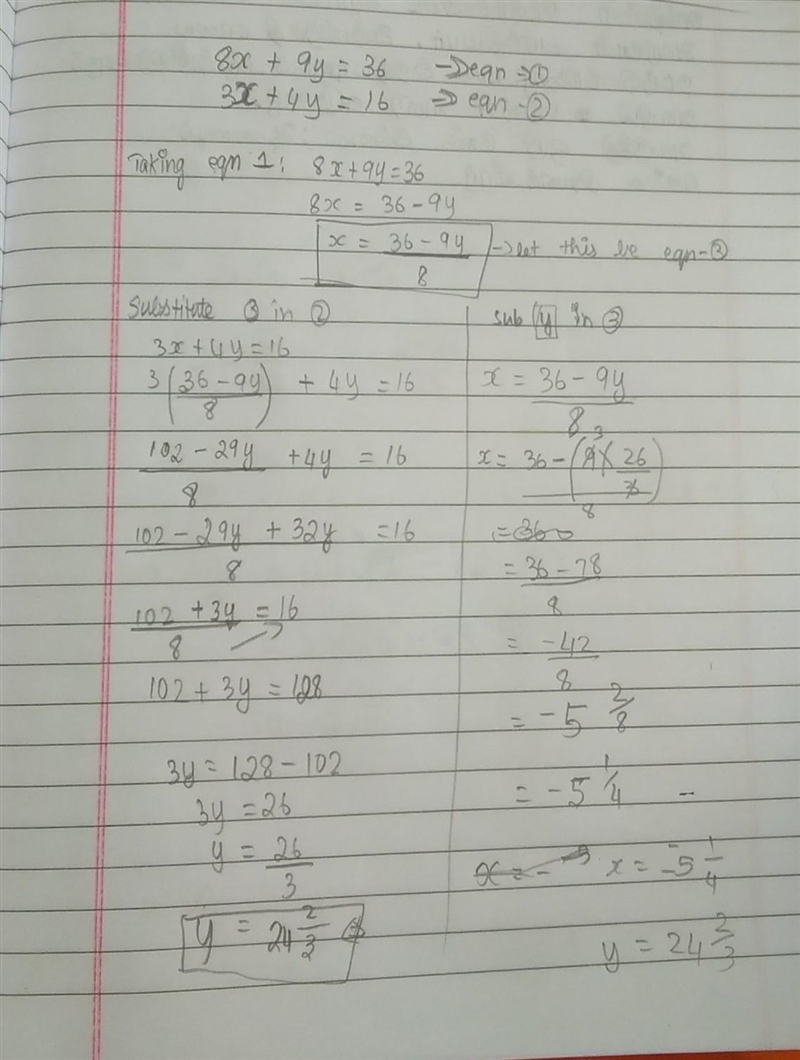 8x + 9y = 36 → eqn → ①
3x + 4y = 16 ⇒ eqn - ②
Taking eqn 1: 8x + 9y = 36
8x = 36 - 9y
x = (36 - 9y)/8 → let this be eqn - ③
Substitute ③ in ②
3x + 4y = 16
3((36 - 9y)/8) + 4y = 16
(102 - 29y)/8 + 4y = 16
(102 - 29y + 32y)/8 = 16
(102 + 3y)/8 = 16
102 + 3y = 128
3y = 128 - 102
3y = 26
y = 26/3
y = 24 2/3
sub y in ③
x = (36 - 9y)/8
x = (36 - (9 3 × 26/3))/8
= 36
= (36 - 78)/8
= -42/8
= -5 2/8
= -5 1/4 -
x = - x = -5 1/4
y = 24 2/3